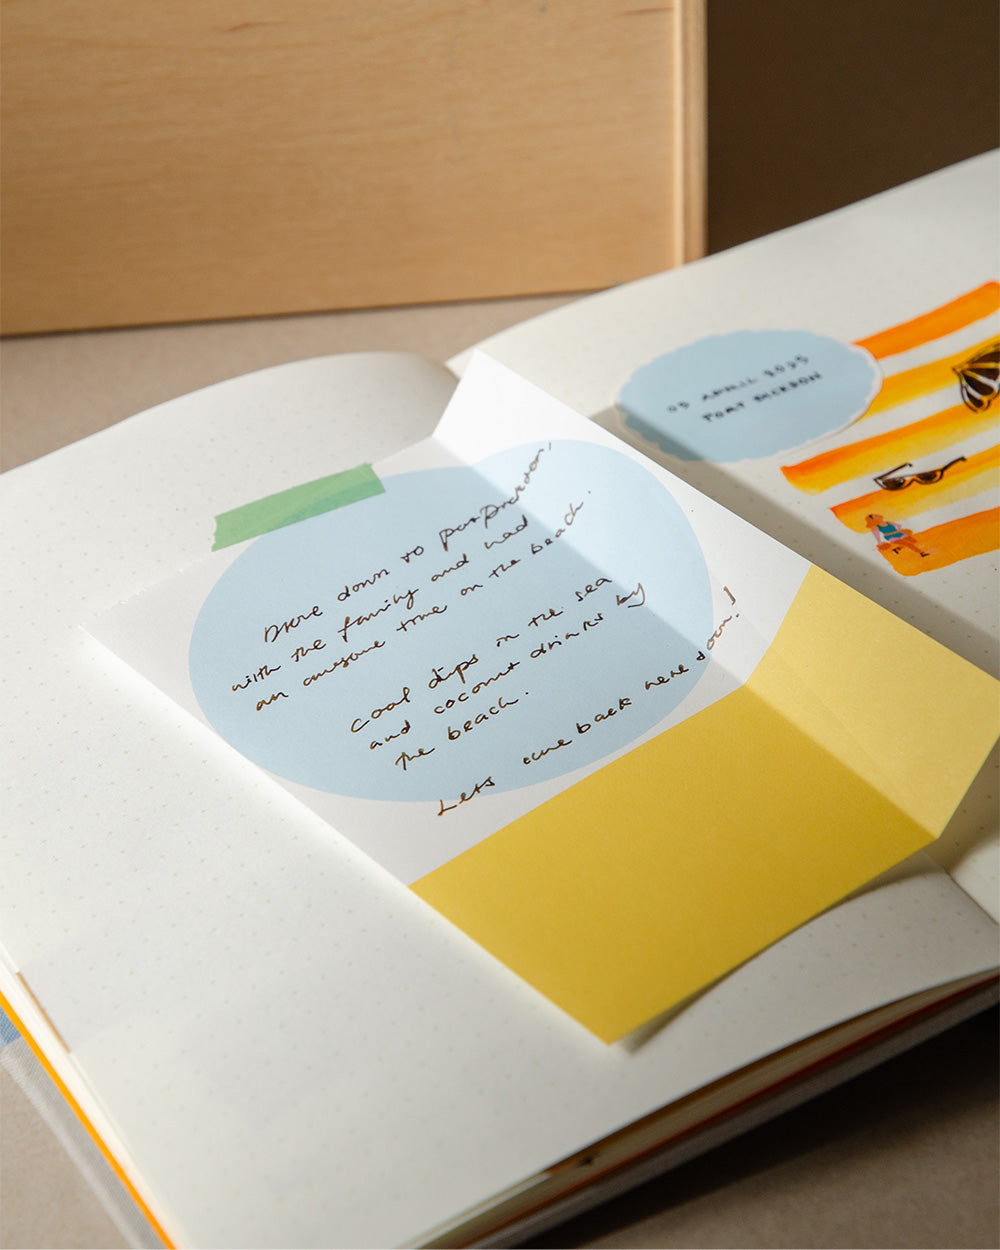 Drove down to portdickson,
with the family and had
an awesome time on the beach.
cool dips in the sea
and coconut drinks by
the beach.
Lets come back here soon!
05 APRIL 2025
PORT DICKSON